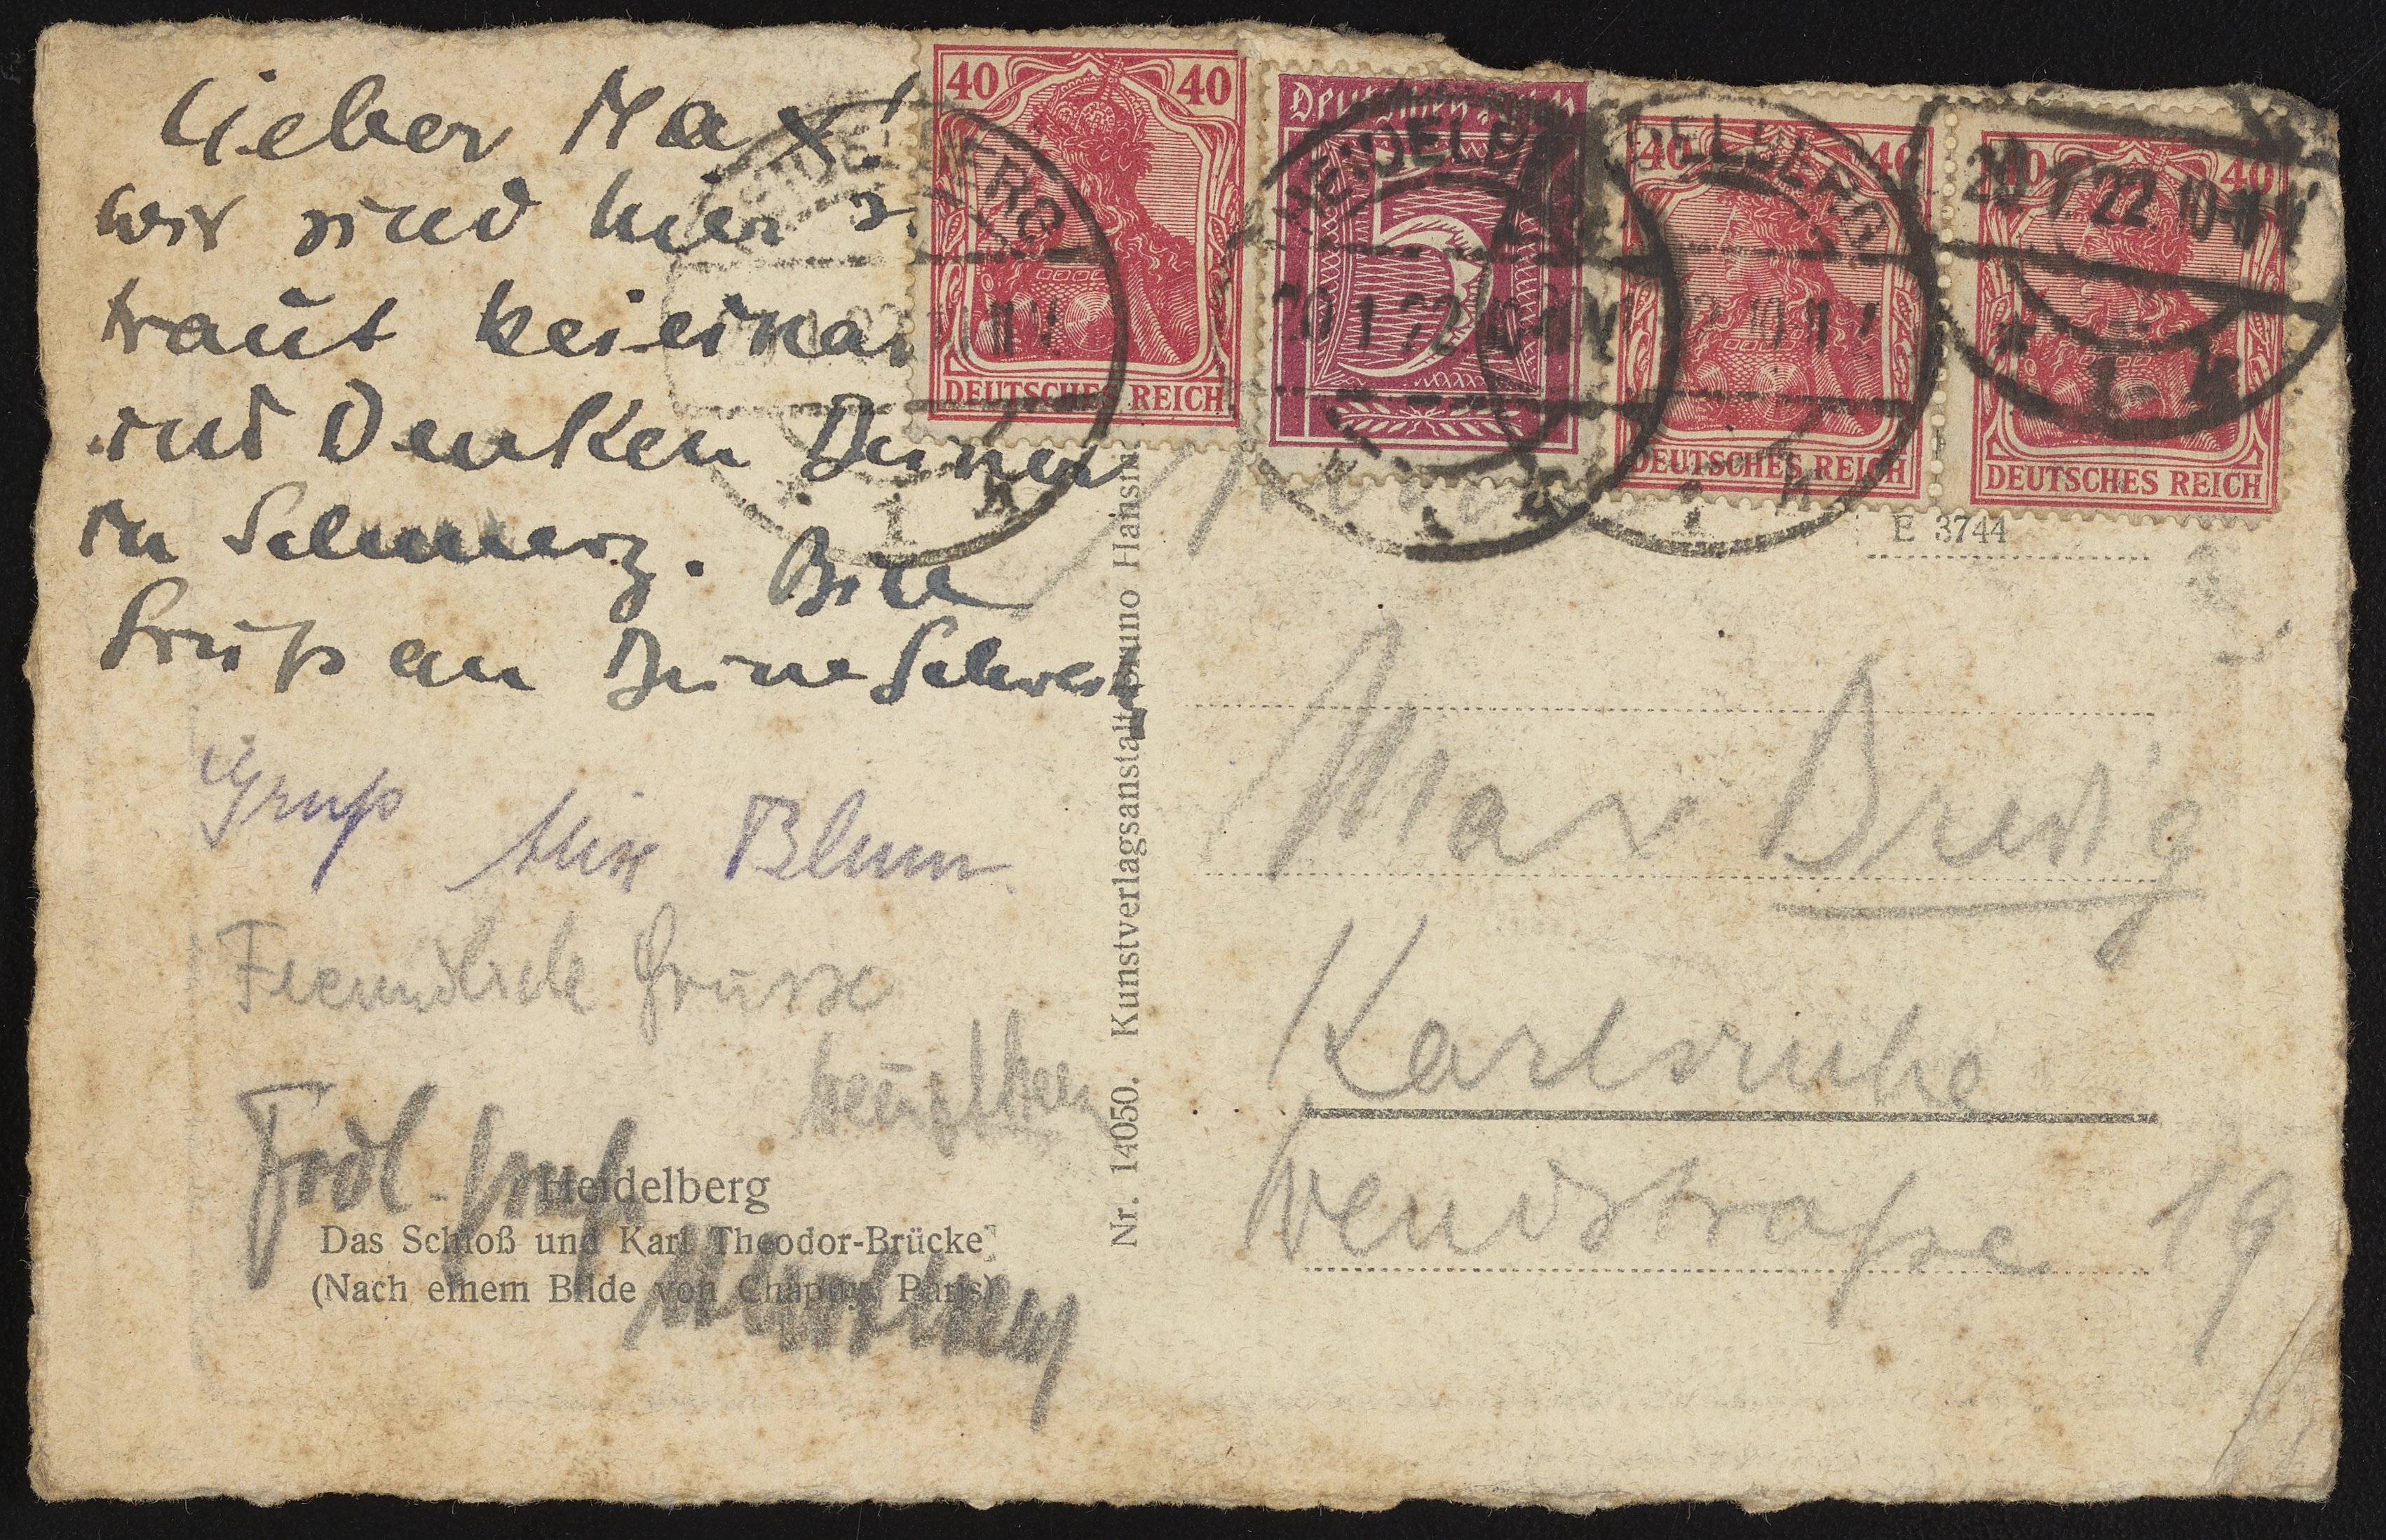 Lieber Max!
wir sind hier
traut beieinan
und Denken Deiner
in Schmerz. Bitte
Gruß an Deine Schwest
Gruß Blum
Freundliche Grüsse
Frdl. Gruß
Heidelberg
Das Schloß und Karl Theodor-Brücke
(Nach einem Bilde von Chapuy, Paris)
Nr. 14050. Kunstverlagsanstalt Bruno Hansm
40 40
DEUTSCHES REICH
Deutsches Reich
5
40 40
DEUTSCHES REICH
40 40
DEUTSCHES REICH
HEIDELBERG
20.1.22. 10-11 V
1
HEIDELBERG
20.1.22. 10-11 V
1
HEIDELBERG
10-11 V
1
20.1.22. 10-11 V
1
E 3744
Max Bredig
Karlsruhe
Wendtstraße 19